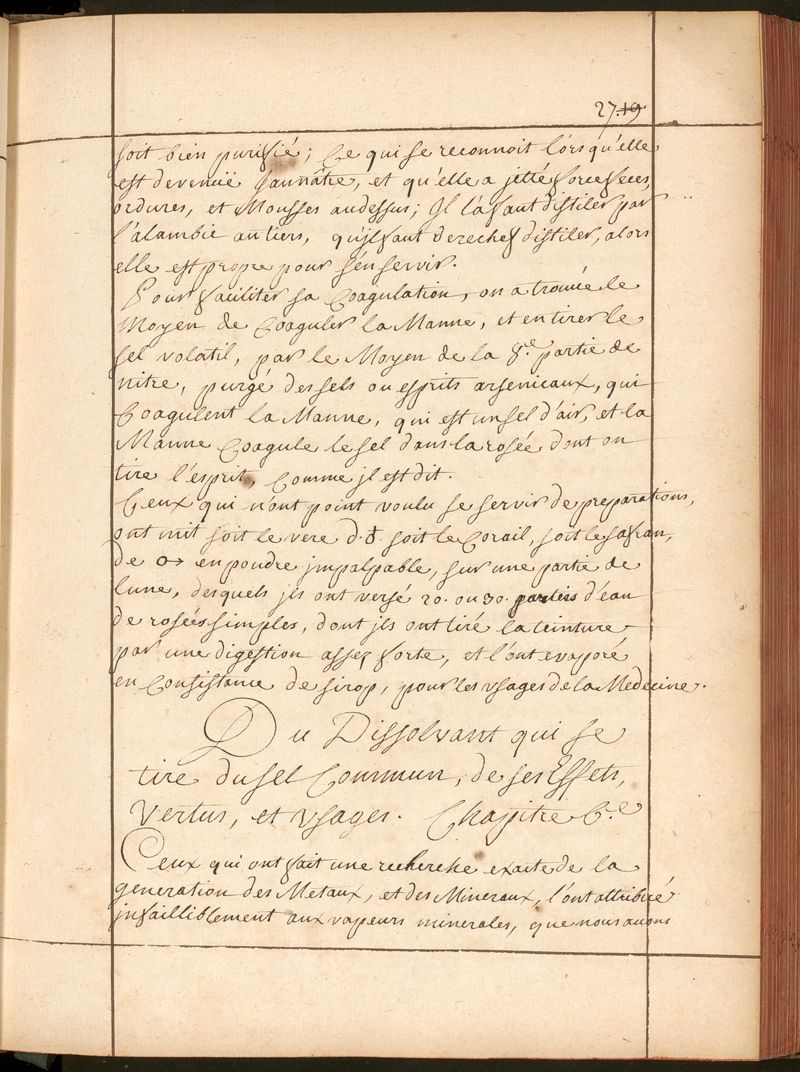 27.19
soit bien purifié; Ce qui se reconnoit lórs qu'elle
est devenuë Jaunâtre, et qu'elle a jetté force feces,
ordures, et Mousses audessus; Il l'a faut distiler par
l'alambic au tiers, qu'jl faut derechef distiler, alors
elle est propre pour s'én servir.
Pour faciliter sa Coagulation, on a trouvé le
Moyen de Coaguler la Manne, et en tirer le
sel volatil, par le Moyen de la 8.e partie de
nitre, purgé des sels ou esprits arsenicaux, qui
Coagulent la Manne, qui est un sel d'air, et la
Manne Coagule le sel dans la rosée dont on
tire l'esprit, Comme jl est dit.
Ceux qui n'ont point voulu se servir de preparations,
ont mit soit le vere d.♁. soit le Corail, soit le safran,
de ♂ en poudre jmpalpable, sur une partie de
lune, desquels jls ont versé 20. ou 30. parties d'éau
de rosées simples, dont jls ont tiré la teinture
par une digestion assez forte, et l'ont evaporé
en Consistance de sirop, pour les vsages de la Medecine.
Du Dissolvant qui se
tire du sel Commun, de ses Effets,
Vertus, et Vsages. Chapitre 6.e
Ceux qui ont fait une recherche exacte de la
generation des Metaux, et des Mineraux, l'ont attribué
jnfailliblement aux vapeurs minerales, que nous avons